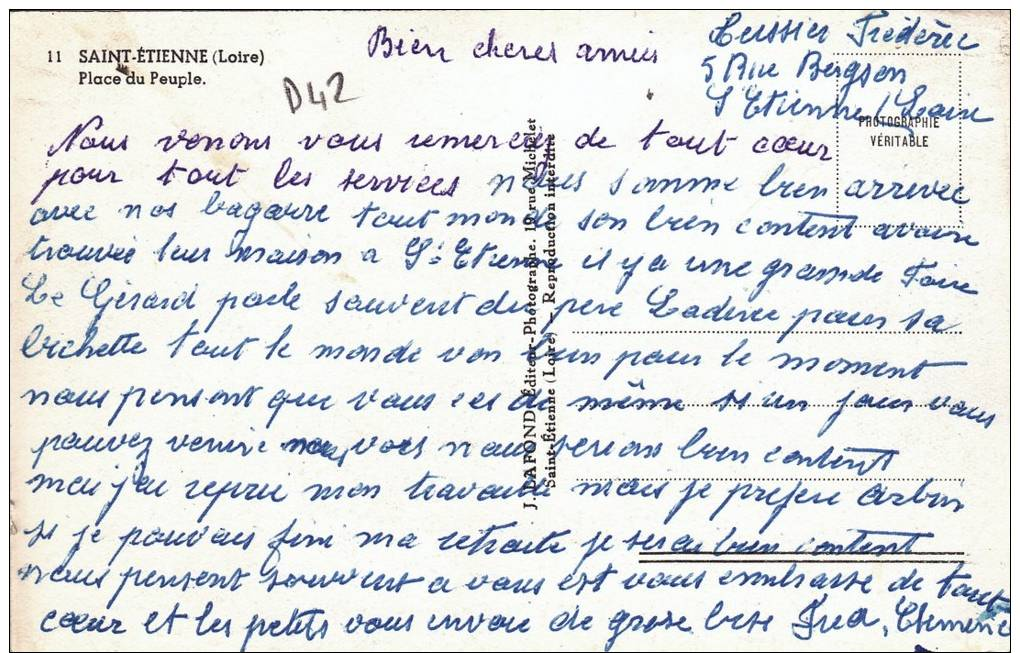 11 SAINT-ÉTIENNE (Loire)
Place du Peuple.
D42
Bien cheres amies
Frédéric
5 Rue Bergson
St Etienne / Loire
PHOTOGRAPHIE
VÉRITABLE
J. LAFOND, Éditeur-Photographe. 19, rue Michelet
Saint-Étienne (Loire) — Reproduction interdite
Nous venons vous remercie de tout cœur
pour tout les services nous somme bien arrivee
avec nos bagarre tout monde son bien content avoire
trouvée leur maison a St Etienne il y a une grande Foire
Le Gérard parle souvent du pere pour sa
bichette tout le monde von bien pour le moment
nous pensont que vous de même si un jour vous
pouvez venire nous vois nous serions bien content
moi j'ai repri mon travaille mais je prefere Arbin
si je pouvais finir ma retraite je serai bien content
nous pensent souvent a vous est vous embrasse de tout
cœur et les petits vous envoie de grose bise Fred, Clemence